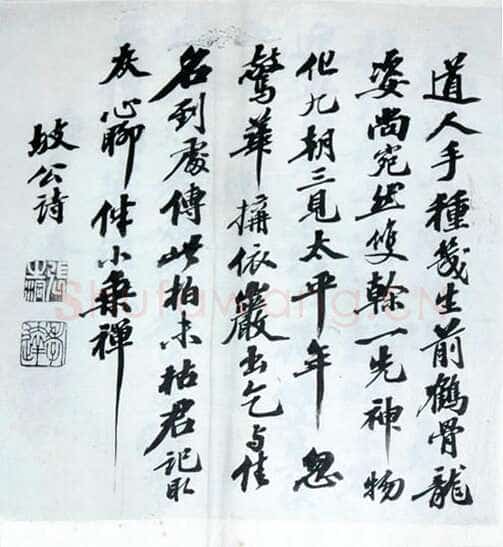 道人手種幾生前鶴骨龍
姿尚宛然雙幹一先神物
化九朝三見太平年忽
驚華搆依巖出乞与佳
名到處傳此柏未枯君記取
灰心聊伴小乘禪
坡公詩
Shufawang.CN